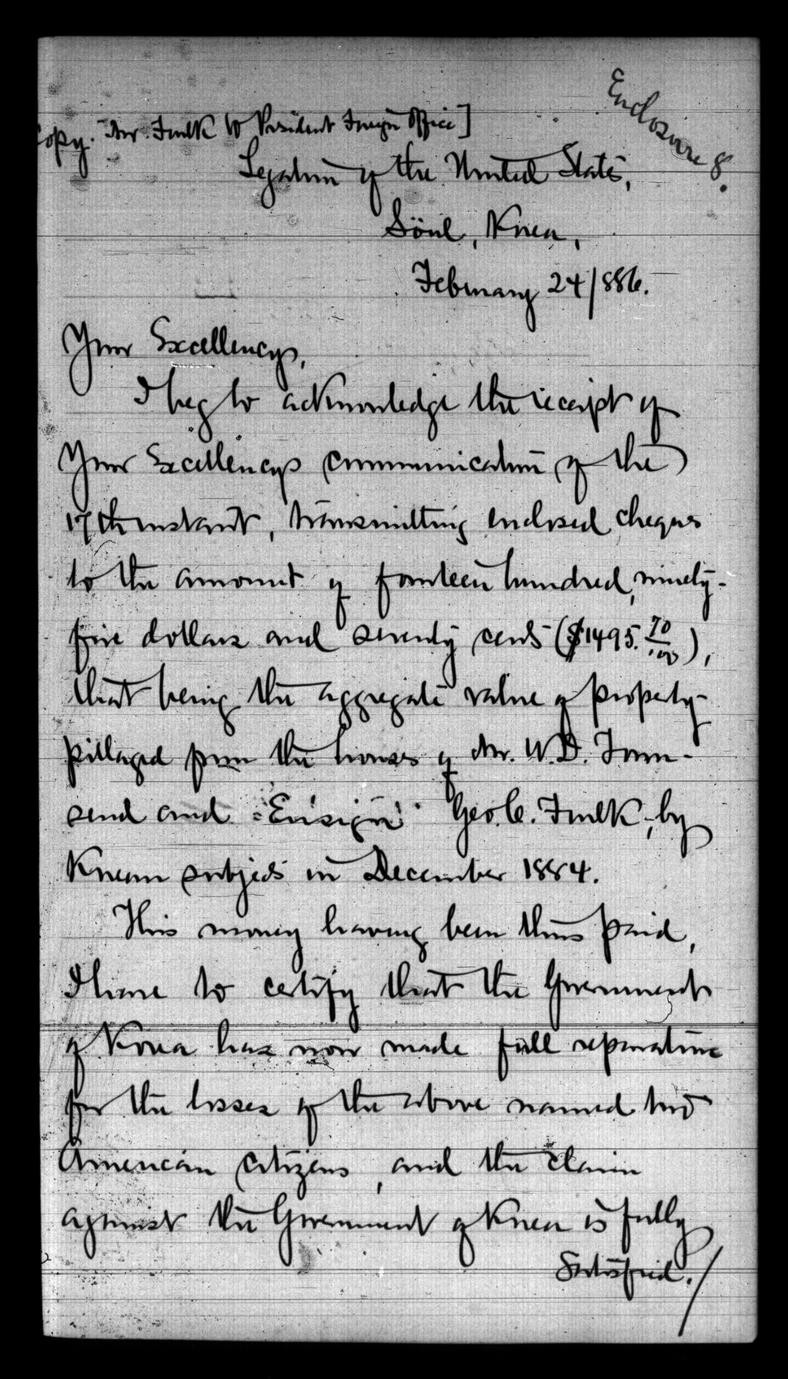 Enclosure 8.
Copy. Mr. Foulk to President Foreign Office]
Legation of the United States,
Söul, Korea,
February 24/886.
Your Excellency,
I beg to acknowledge the receipt of
Your Excellency's communication of the
17th instant, transmitting enclosed cheques
to the amount of fourteen hundred, ninety-
five dollars and seventy cents ($1495. 70/100),
that being the aggregate value of property
pillaged from the houses of Mr. W.D. Town-
send and "Ensign" Geo. C. Foulk, by
Korean subjects in December 1884.
This money having been thus paid,
I have to certify that the Government
of Korea has now made full reparation
for the losses of the above named two
American citizens, and the claim
against the Government of Korea is fully
satisfied./